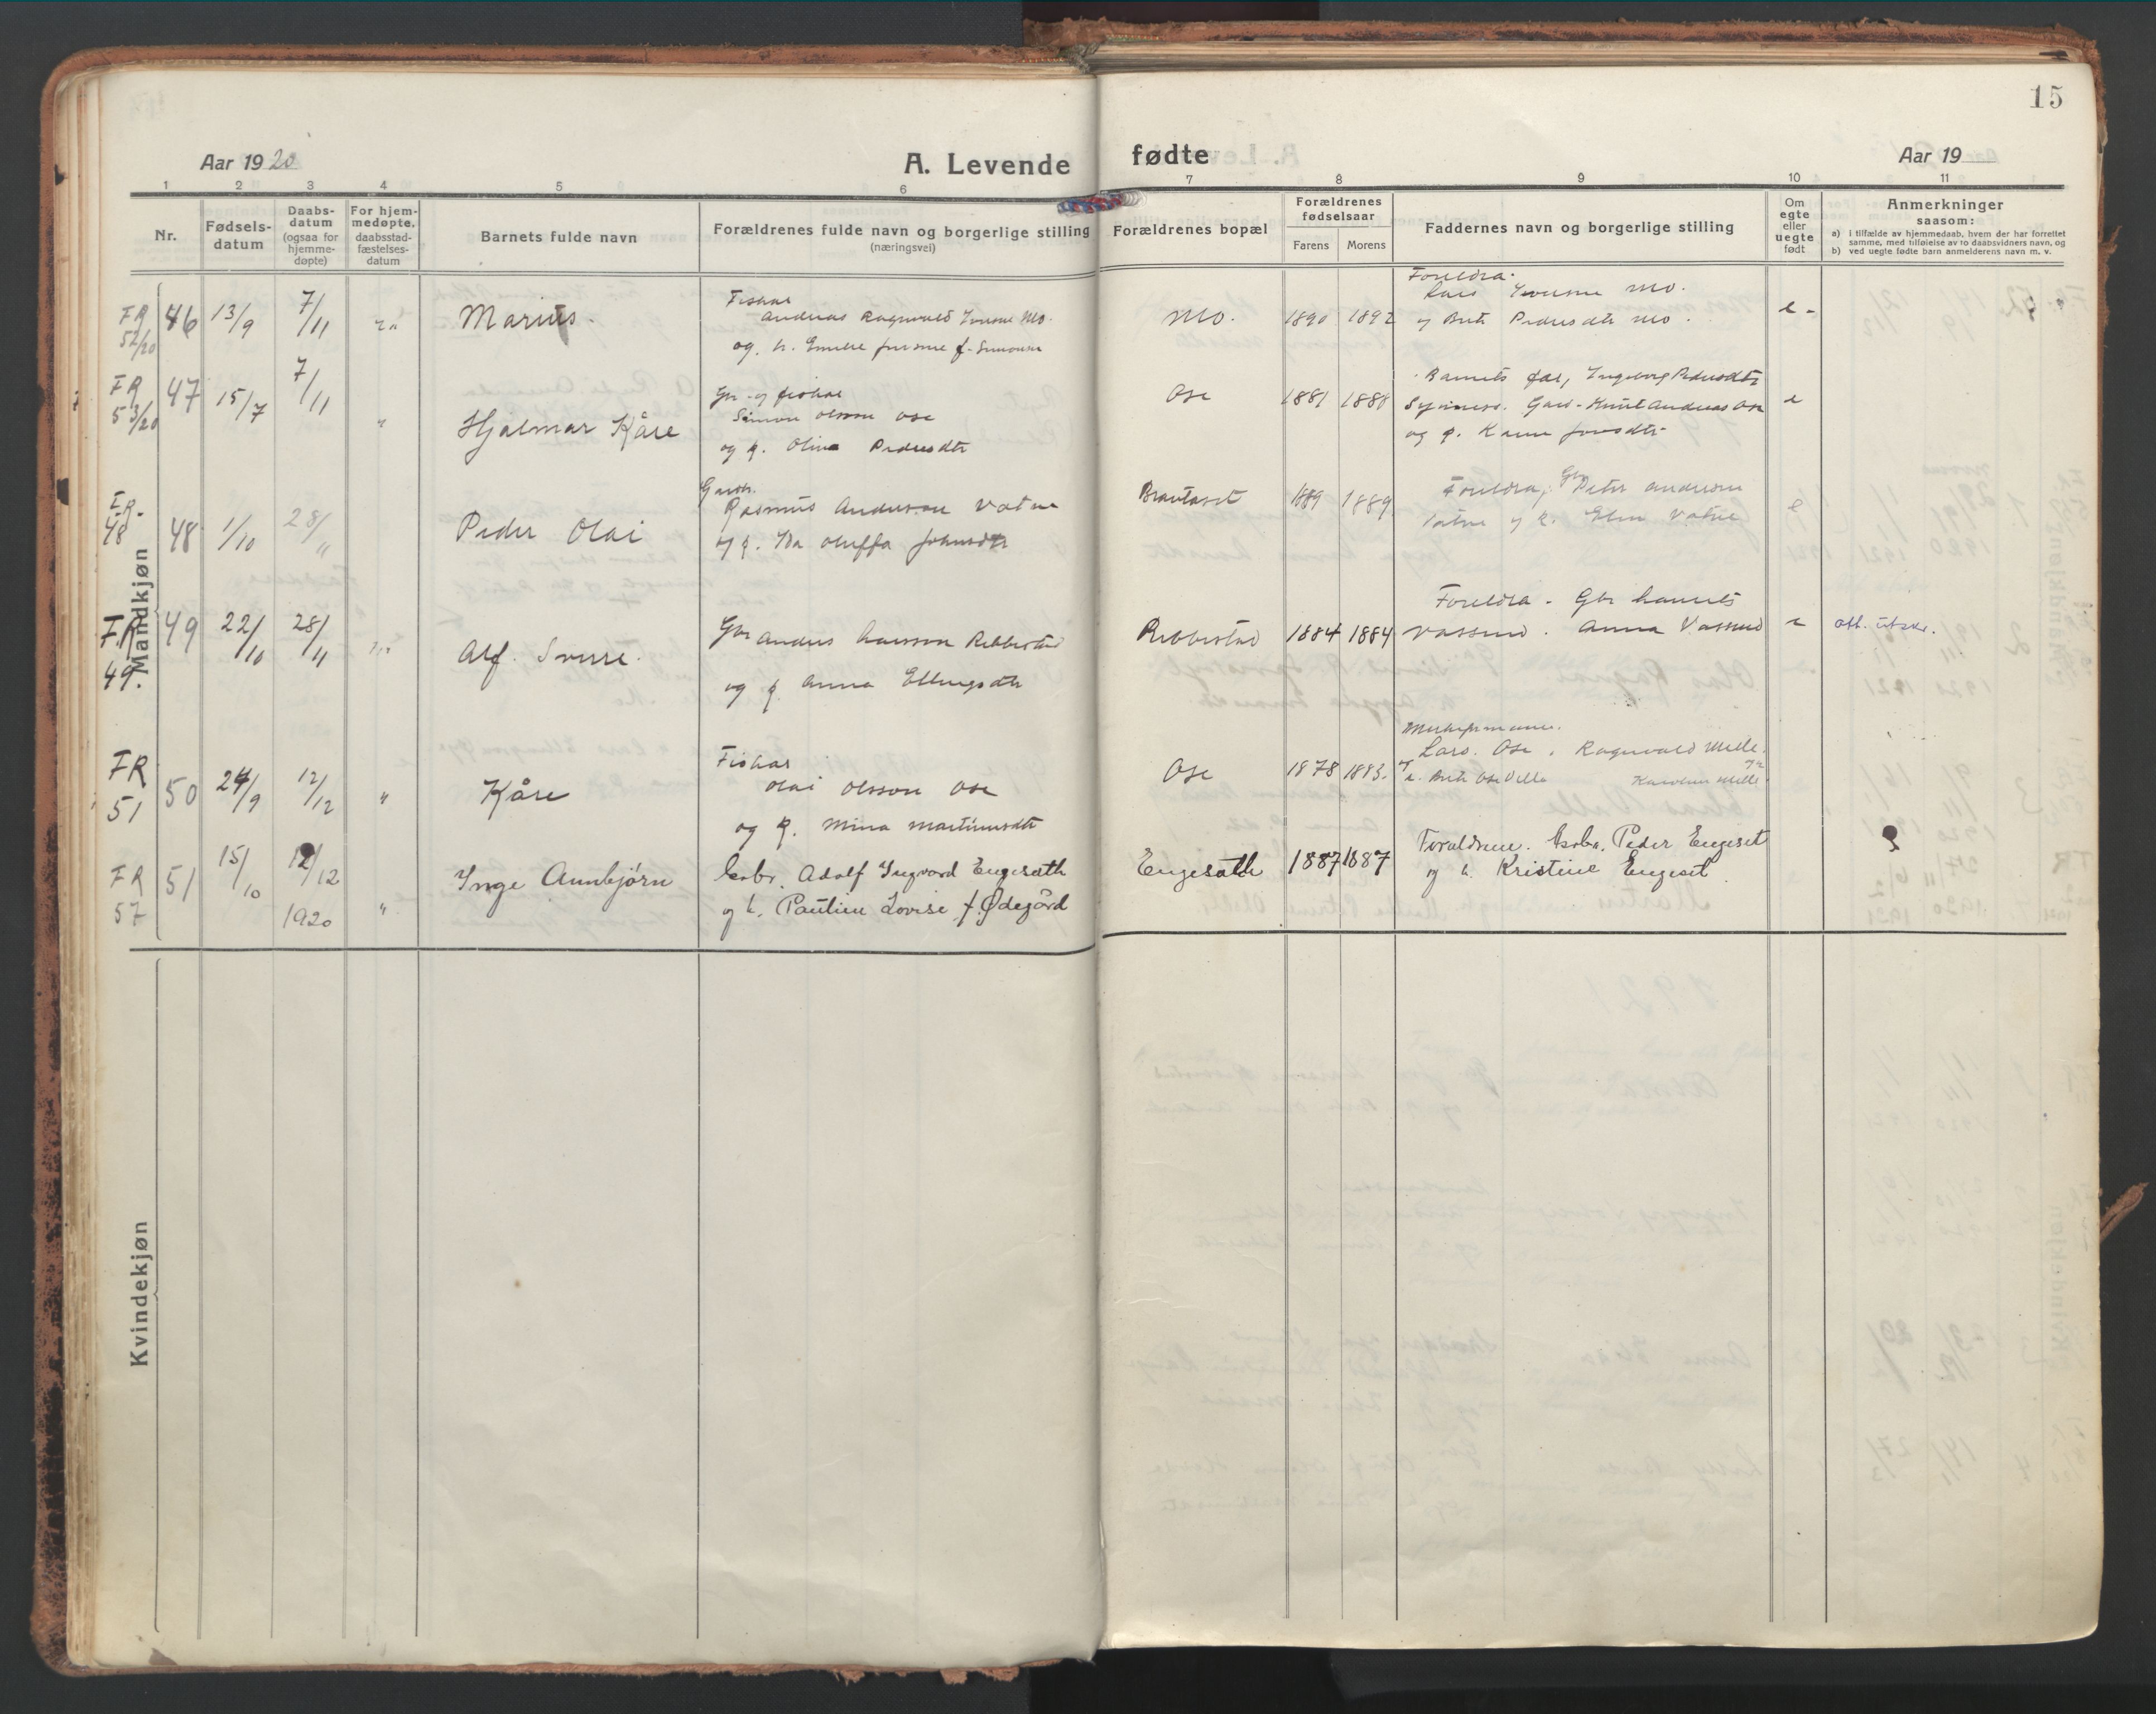 15
Aar 1920 A. Levende fødte Aar 19
1 2 3 4 5 6 7 8 9 10 11
Nr. Fødsels-datum Daabs-datum (ogsaa for hjemme-døpte) For hjem-medøpte, daabsstad-fæstelses-datum Barnets fulde navn Forældrenes fulde navn og borgerlige stilling (næringsvei) Forældrenes bopæl Forældrenes fødselsaar Farens Morens Faddernes navn og borgerlige stilling Om egte eller uegte født Anmerkninger saasom:
a) i tilfælde av hjemmedaab, hvem der har forrettet samme, med tilføielse av to daabsvidners navn, og
b) ved uegte fødte barn anmelderens navn m. v.
Mandkjøn
FR 52/20 46 13/9 7/11 Marius. Fiskar
Andreas Ragnvald Iversen Mo.
og h. Emilie f. Simonsen
Mo. 1890 1892 Foreldra.
Lars Iversen Mo.
og Brit Pedersdtr Mo. e.
FR 53/20 47 15/7 7/11 " Hjalmar Kåre Gbr. og fiskar
Simon Olsson Ose
og k. Olina Pedersdtr
Ose 1881 1888 Barnets far, Ingeborg Pedersdtr
Synnes. Gard. Knut Andreas Ose
og k. Karen Jonsdtr e
F.R. 48 48 1/10 28/" Peder Olai Gardbr.
Rasmus Anderson Vatne
og k. Ida Oluffa Johnsdtr
Brautaset 1889 1889 Foreldra, Gbr Peter Anderson
Vatne og k. Elen Vatne e
F.R. 49. 49 22/10 28/11 Alf. Sverre. Gbr Anders Larsson Ribbestad
og k. Anna Ellingsdtr
Ribbestad 1884 1884 Foreldra. Gbr Laurits
Vassend. Anna Vassend e att. utskr.
FR 51 50 24/9 12/12 " Kåre Fiskar
Olai Olsson Ose
og k. Mina Martinusdtr
Ose 1878 1883. Lars. Ose, Ragnvald Melle.
og k. Brit Ose Karoline Melle
FR 57 51 15/10 12/12 1920 " Inge Annbjørn Gbr. Adolf Ingvard Engesæth
og h. Pauline Lovise f. Ødegård
Engesæth 1887 1887 Foreldrene. Gbr. Peder Engeset
og h. Kristine Engeset.
Kvindekjøn